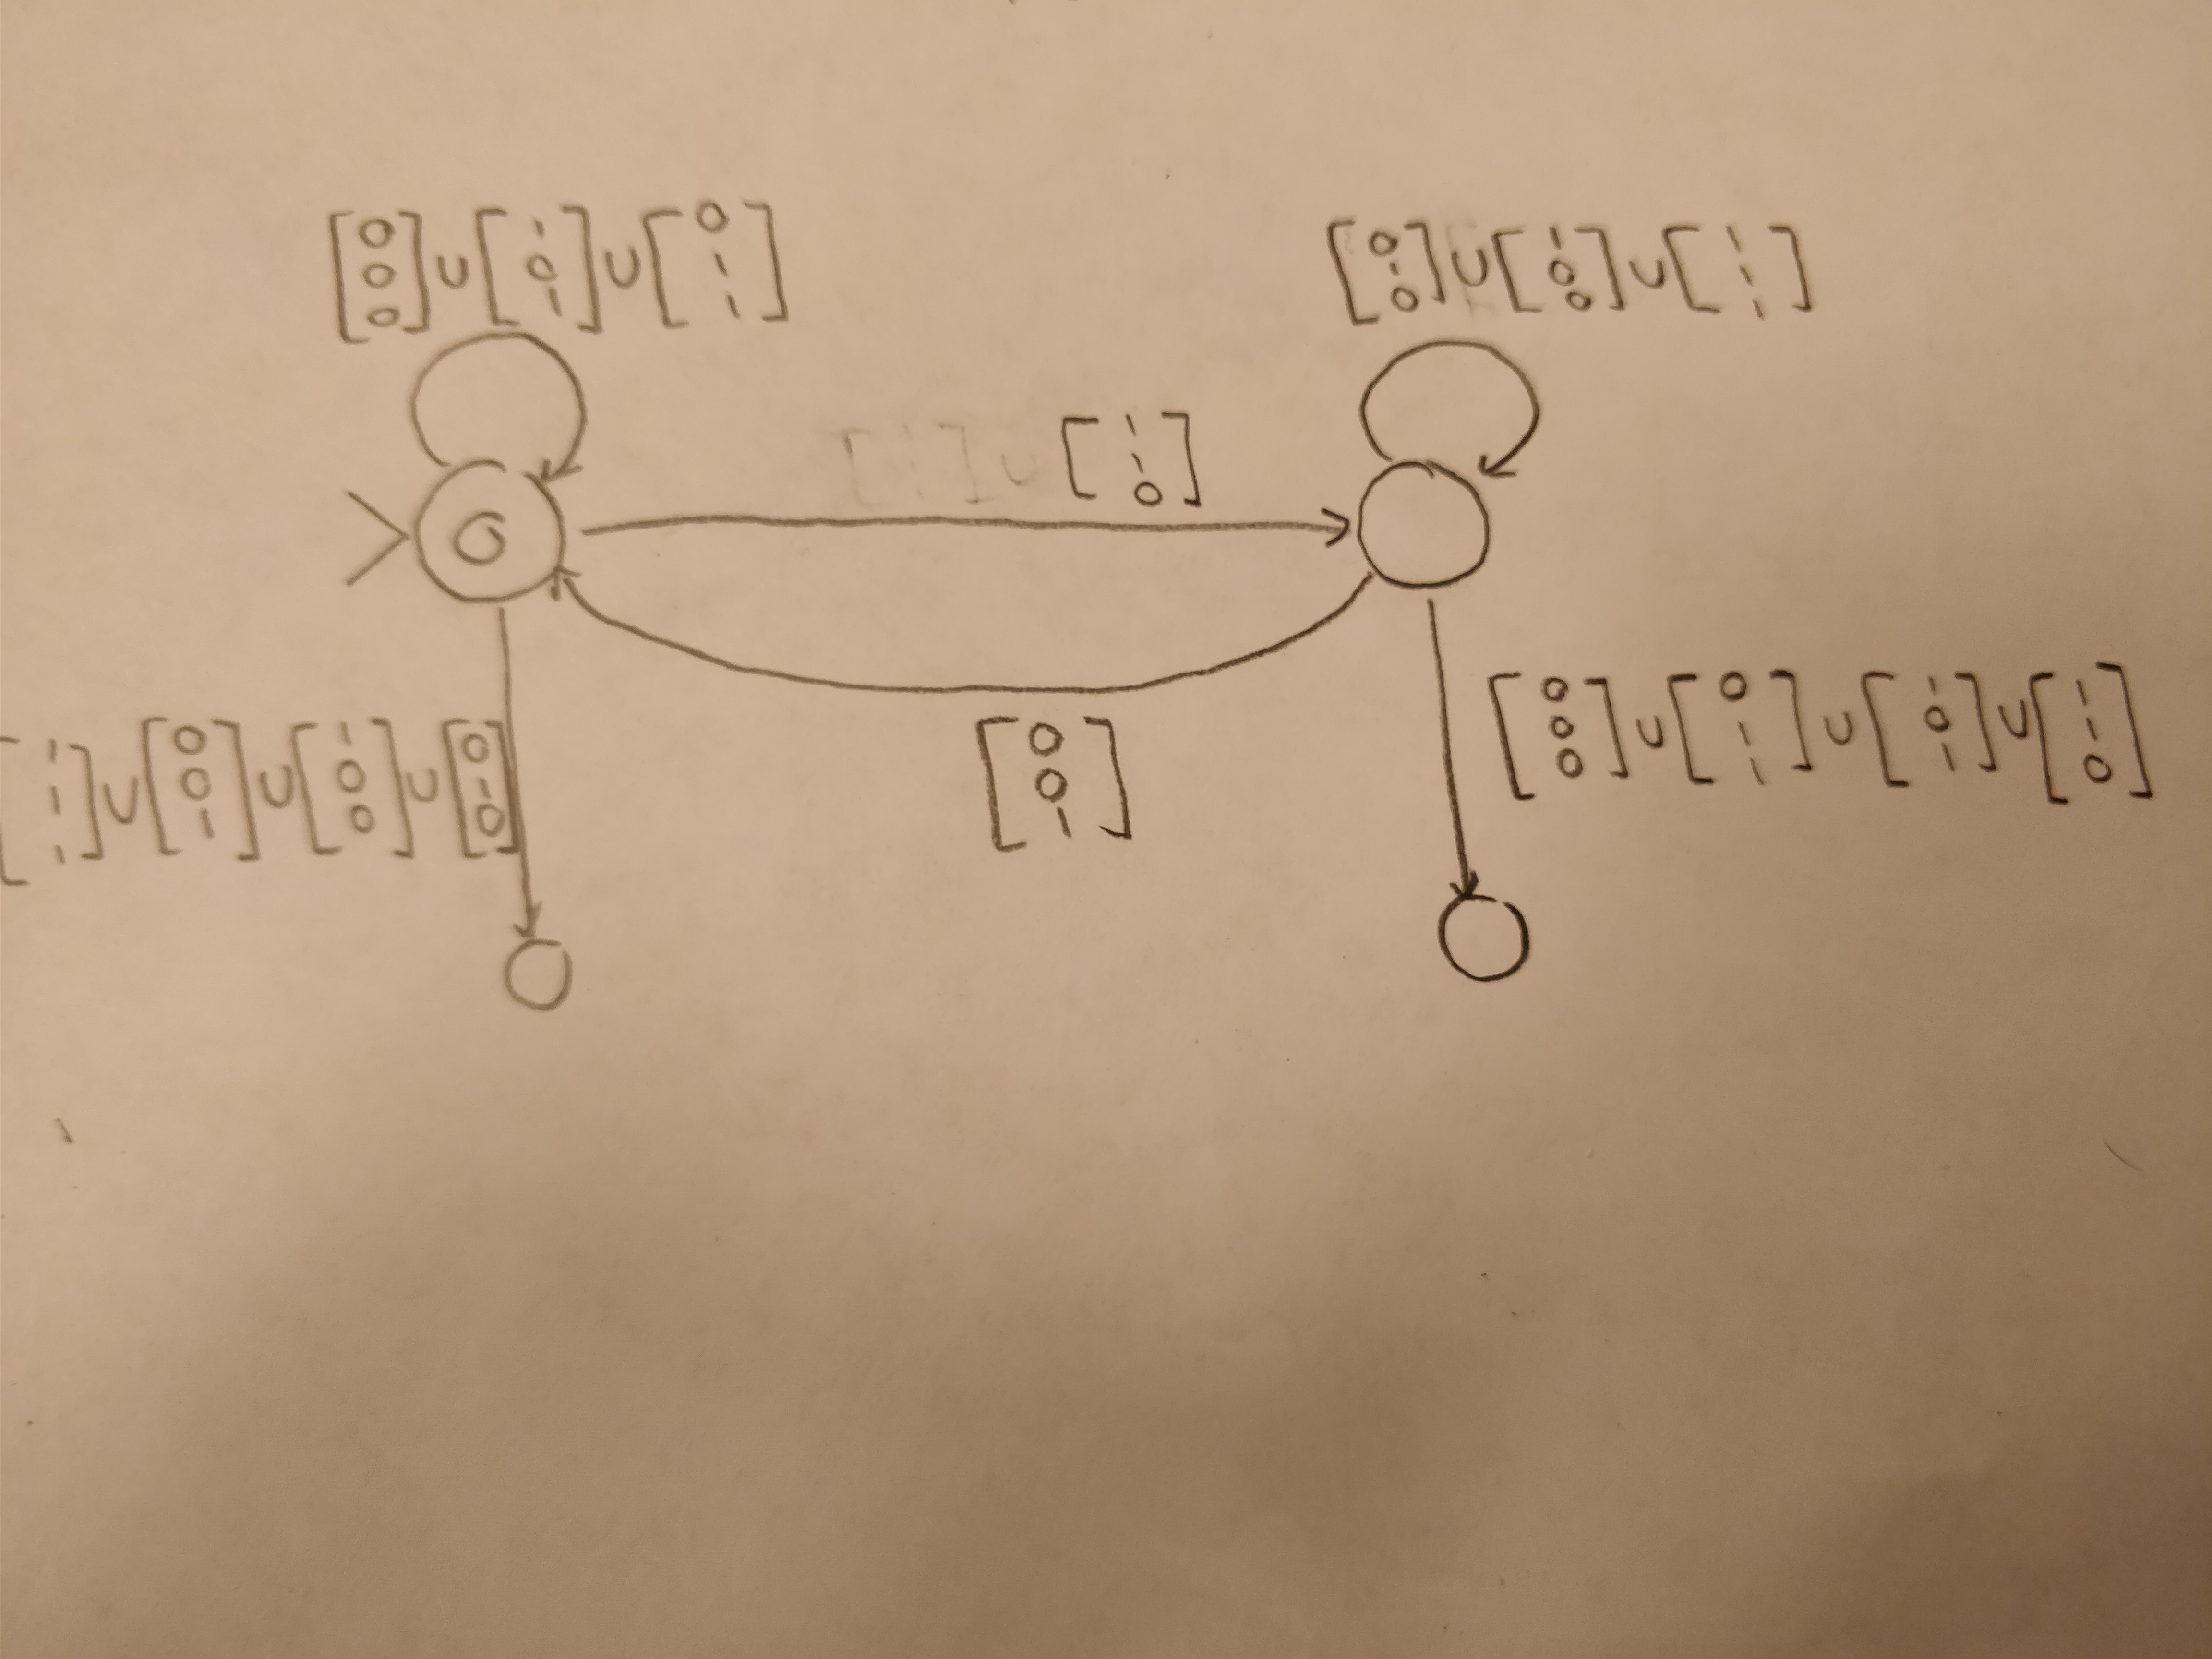 [0 0 0] ∪ [1 0 1] ∪ [0 1 1]
[0 1 0] ∪ [1 0 0] ∪ [1 1 1]
[1 1 0]
[0 0 1]
[1 1 1] ∪ [0 0 1] ∪ [1 0 0] ∪ [0 1 0]
[0 0 0] ∪ [0 1 1] ∪ [1 0 1] ∪ [1 1 0]